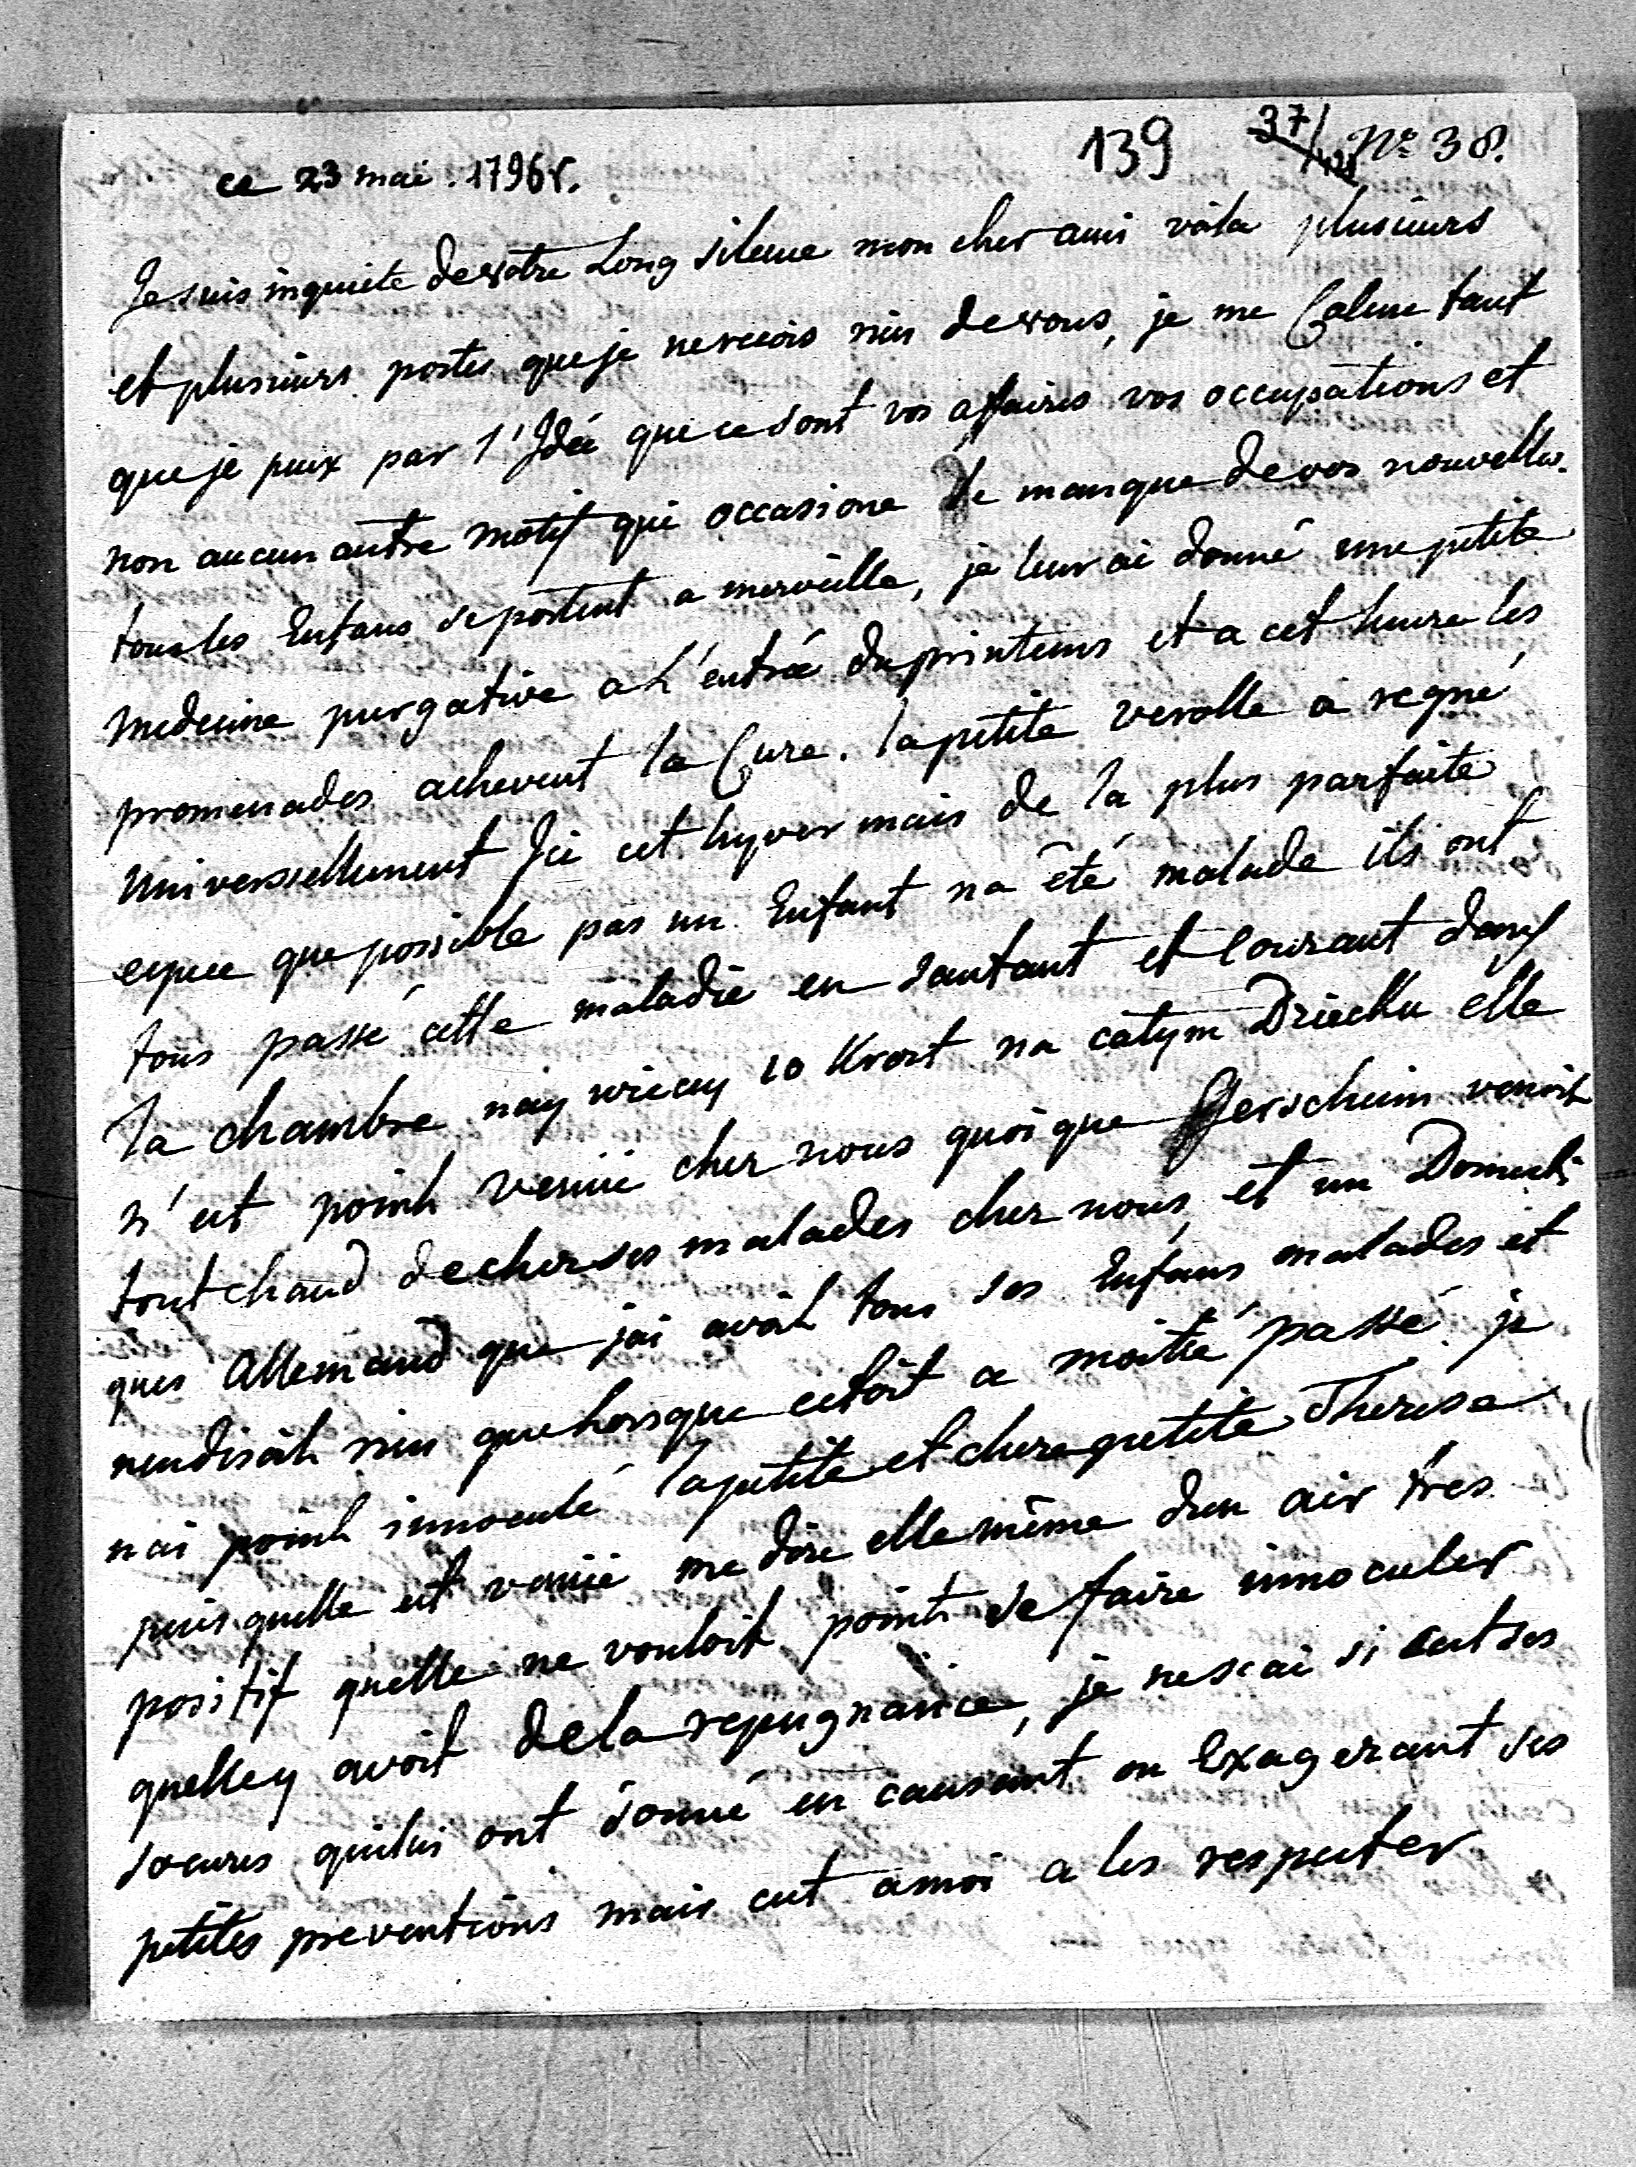 ce 23 mai. 1796 r.
139 37/ № 38.
Je suis inquiete de votre Long silence mon cher ami voila plusieurs
et plusieurs postes que je ne recois rien de vous, je me Calme tant
que je puix par l'Idée que ce sont vos affaires vos occupations et
non aucun autre motif qui occasione le manque de vos nouvelles.
tous les Enfans se portent a merveille, je leur ai donné une petite
medecine purgative a L'entrée du printems et a cet heure les
promenades achevent la Cure. la petite verolle a regné
universsellement Ici cet hyver mais de la plus parfaite
espece que possible pas un Enfant na êté malade ils ont
tous passé cette maladie en sautant et Courant dans
la chambre nay wiecey 10 Krost na catym Dziecku elle
n'est point venüe chez nous quoique Gerscheim venoit
tout chaud de chez ses malades chez nous et un Domesti
ques Allemand que jai avoit tous ses Enfans malades et
nendisoit rien que Lorsque cetoit a moitié passé je
nai point innoculé la petite et chere petite Therese
puis quelle est venüe me dire elle même dun air trés
positif quelle ne vouloit point se faire innoculer
quelley avoit de la repugnance, je ne scai si cest ses
soeures qui lui ont donné en causant ou Exagerant ses
petites preventions mais cest a moi a les respecter